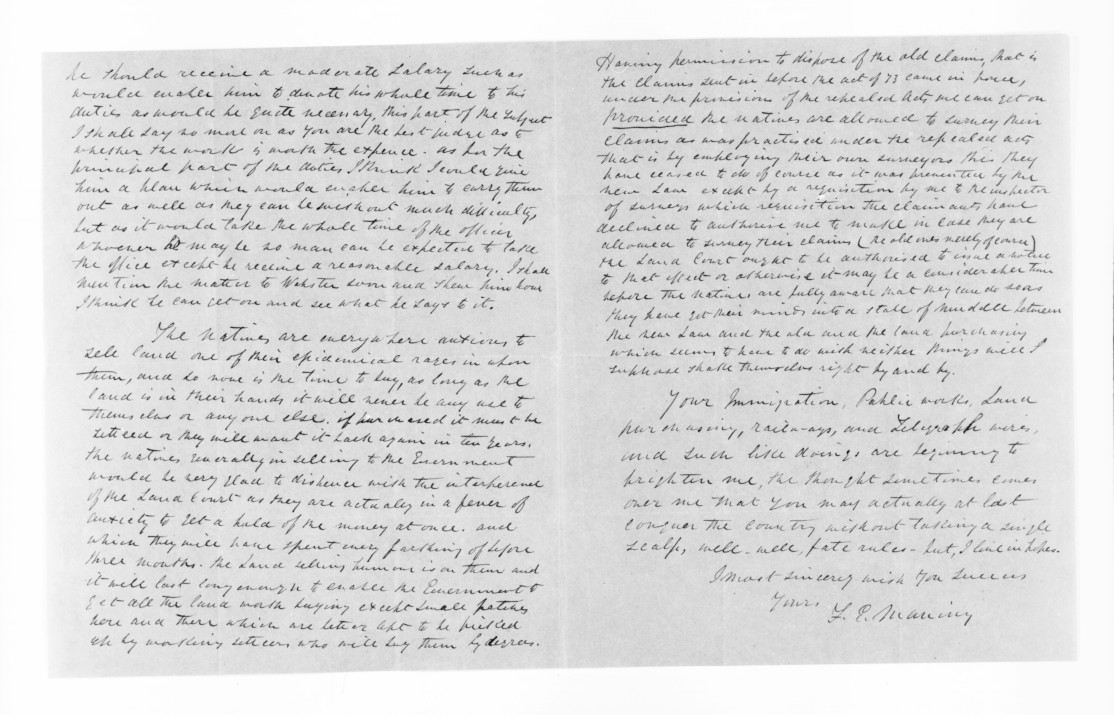 he should receive a moderate salary such as
would enable him to devote his whole time to his
duties as would be quite necessary, this part of the subject
I shall say no more on as you are the best judge as to
whether the work is worth the expence. as for the
principal part of the duties I think I could give
him a plan which would enable him to carry them
out as well as they can be without much difficulty,
but as it would take the whole time of the officer
whoever he may be no man can be expected to take
the office except he receive a reasonable salary. I shall
mention the matter to Webster soon and shew him how
I think he can get on and see what he says to it.
The natives are everywhere anxious to
sell land one of their epidemical rages in upon
them, and so now is the time to buy, as long as the
land is in their hands it will never be any use to
themselves or any one else. if purchased it must be
settled or they will want it back again in ten years.
the natives generally in selling to the Government
would be very glad to dispence with the interference
of the Land Court as they are actually in a fever of
anxiety to get a hold of the money at once. and
which they will have spent every farthing of before
three months. the land selling humour is on them and
it will last long enough to enable the Government to
get all the land worth buying except small patches
here and there which are better left to be picked
up by working settlers who will buy them by degrees.
Having permission to dispose of the old claims, that is
the claims sent in before the act of 73 came in force,
under the provisions of the repealed Acts we can get on
provided the natives are allowed to survey their
claims as was practised under the repealed acts
that is by employing their own surveyors this they
have ceased to do of course as it was prevented by the
new Law except by a requisition by me to the inspector
of surveys which requisition the claimants have
declined to authorise me to make in case they are
allowed to survey their claims (the old ones merely of course)
the Land Court ought to be authorised to issue a notice
to that effect or otherwise it may be a considerable time
before the natives are fully aware that they can do so as
they have got their minds into a state of muddle between
the new Law and the old and the land purchasing
which seems to have to do with neither things will I
suppose shake themselves right by and by.
Your Immigration, Public works, Land
purchasing, railways, and Telegraph wires,
and such like doings are beginning to
frighten me, the thought sometimes comes
over me that you may actually at last
conquer the country without taking a single
scalp, well - well, fate rules - but, I live in hopes.
I most sincerely wish you success
Yours
F. E. Maning